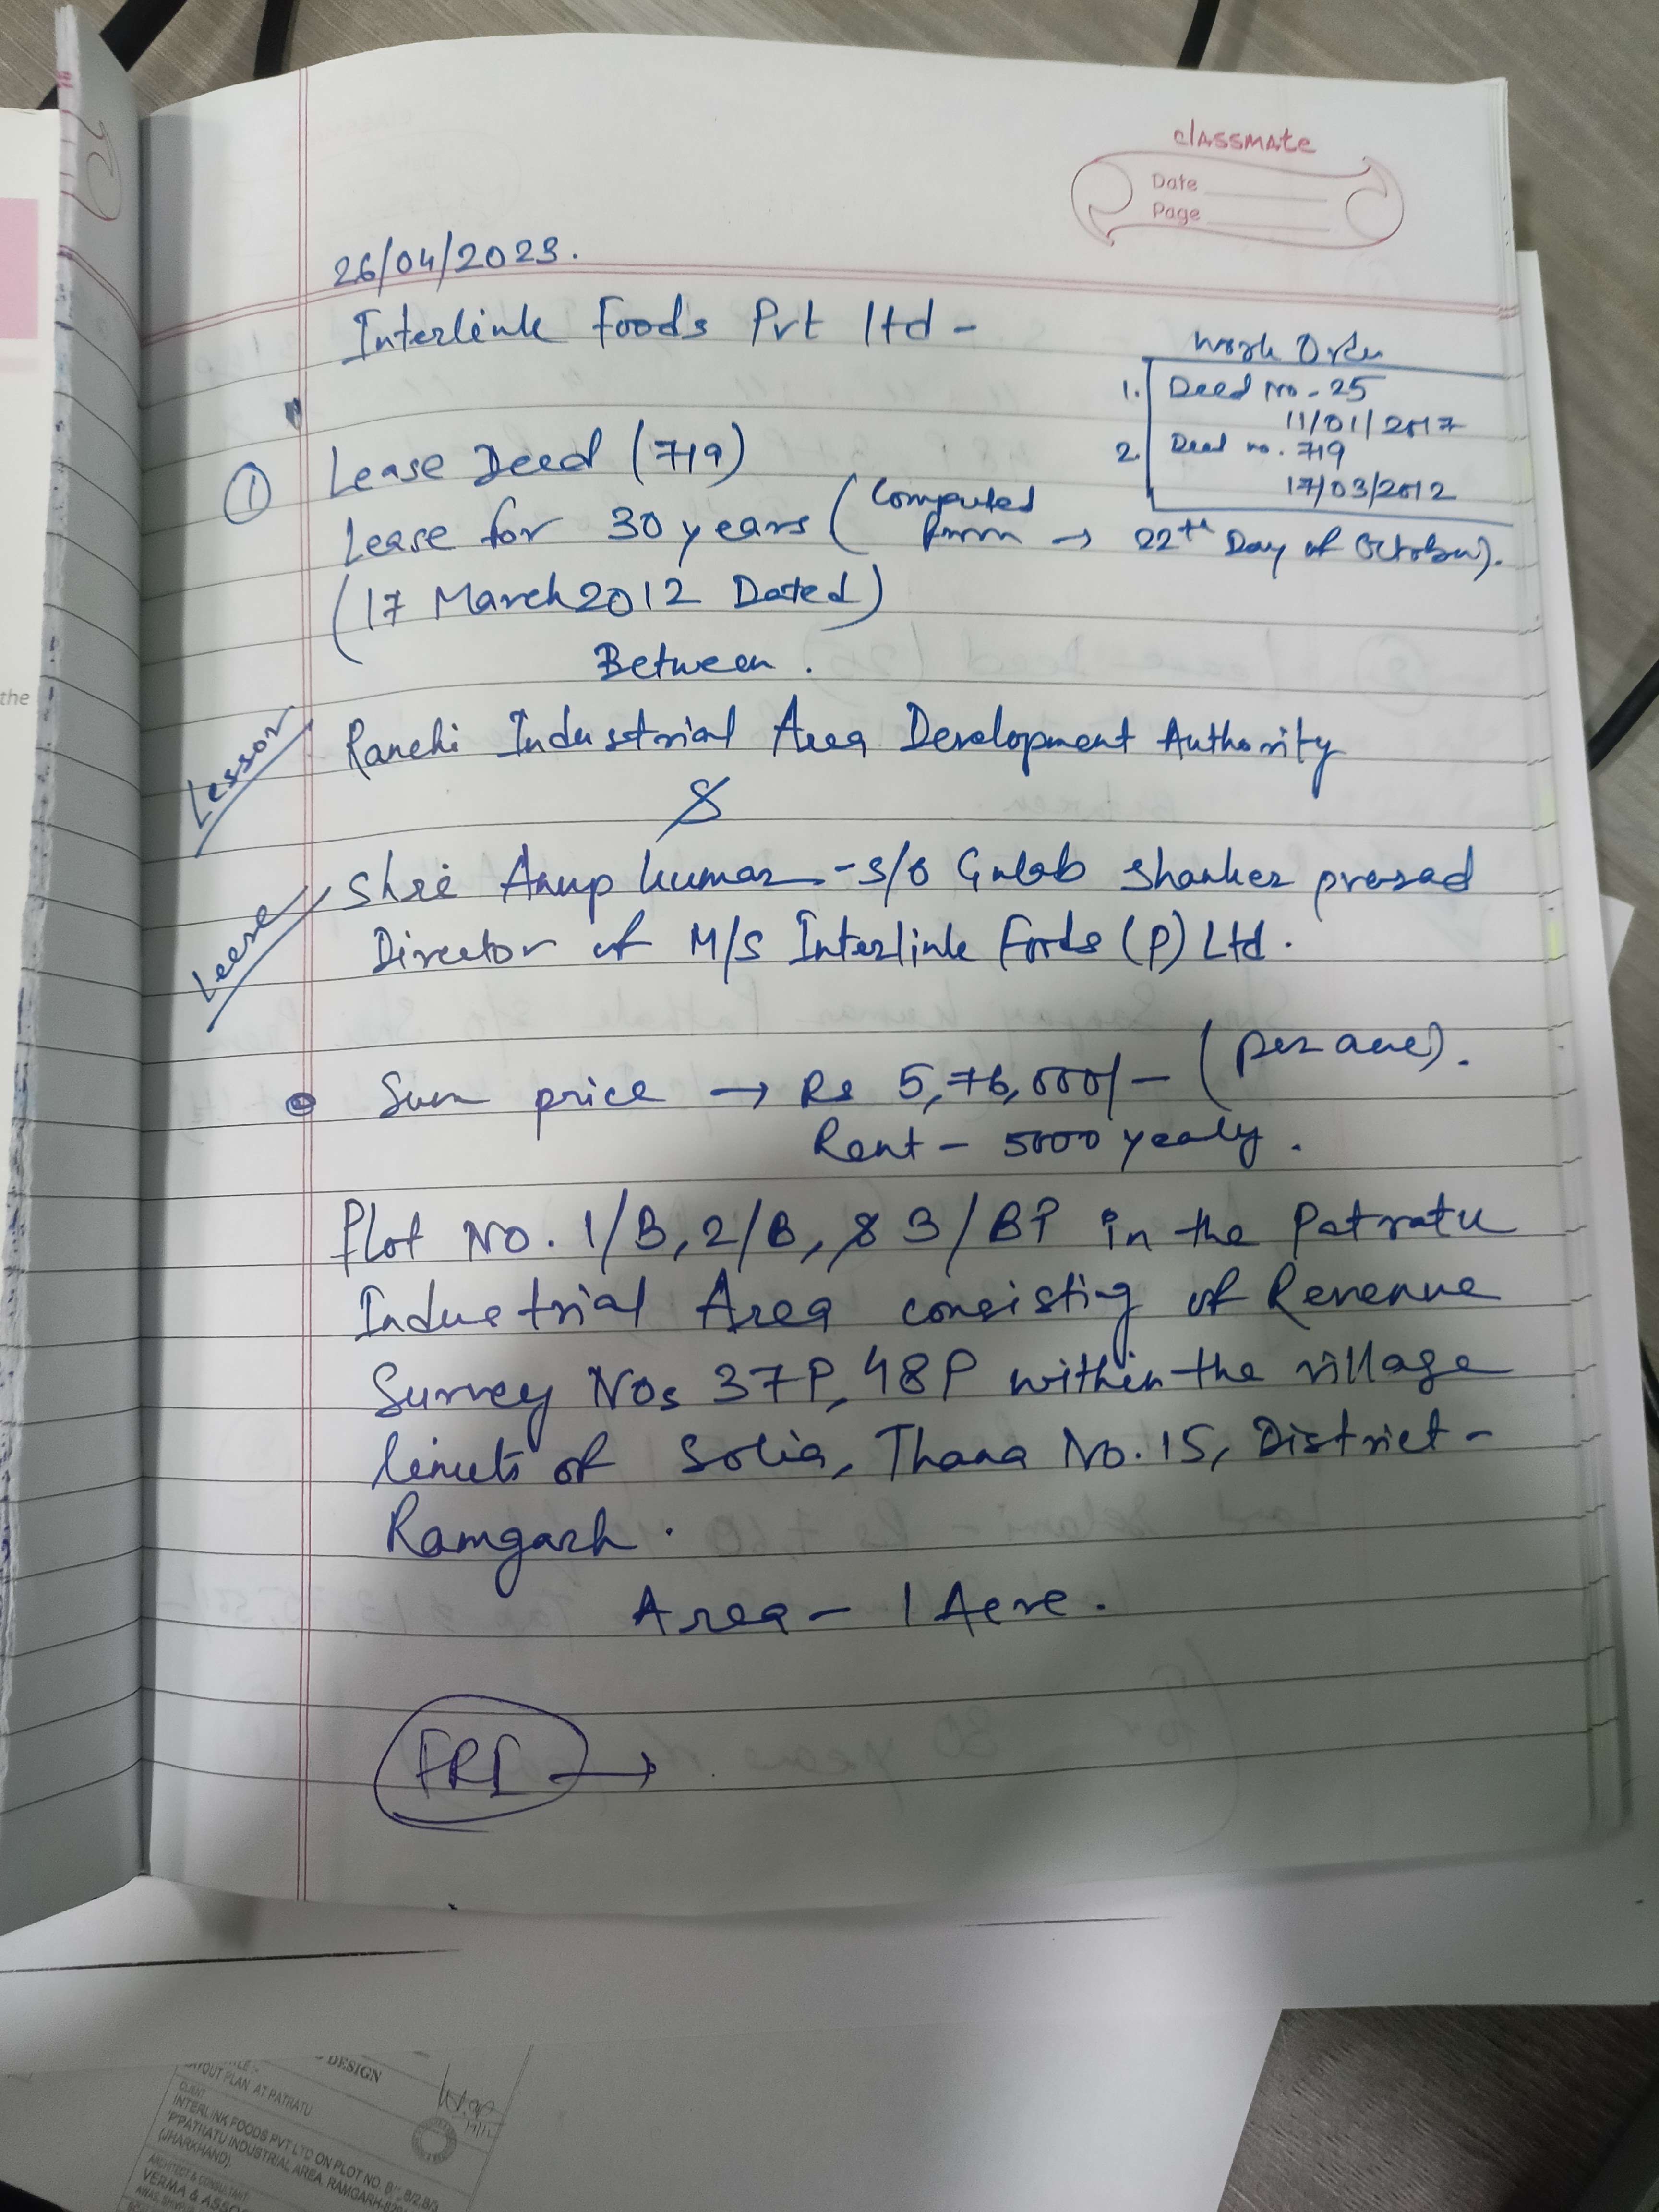 classmate
Date
Page
26/04/2023.
Interlink Foods Pvt ltd -
Work Order
1. Deed No - 25
11/01/2017
2. Deed no. 719
17/03/2012
① Lease Deed (719)
Lease for 30 years (Computed from → 22th Day of October).
(17 March 2012 Dated)
Between.
Lessor Ranchi Industrial Area Development Authority
&
Leese Shri Anup kumar - S/o Gulab Shanker prasad
Director of M/S Interlink Foods (P) Ltd.
Sum price → Rs 5,76,000/- (per acre).
Rent - 5000 yearly.
Plot No. 1/B, 2/B, & 3/BP in the Patratu
Industrial Area consisting of Revenue
Survey Nos 37P, 48P within the village
limits of Solia, Thana No. 15, District -
Ramgarh.
Area - 1 Acre.
→
the
DESIGN
LAYOUT PLAN AT PATRATU
CLIENT
INTERLINK FOODS PVT LTD ON PLOT NO.
PATRATU INDUSTRIAL AREA, RAMGARH
(JHARKHAND).
ARCHITECT & CONSULTANT
VERMA &